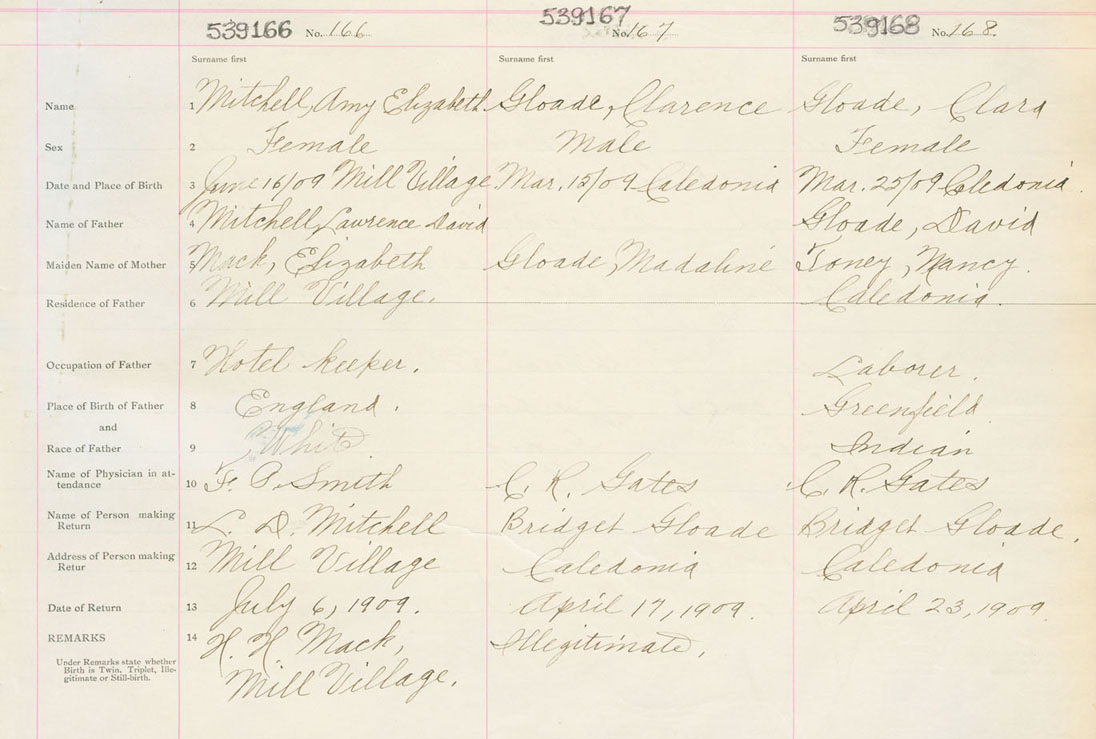 539166 No. 166 539167 No. 167 539168 No. 168.
Surname first Surname first Surname first
Name 1 Mitchell, Amy Elizabeth Gloade, Clarence Gloade, Clara
Sex 2 Female Male Female
Date and Place of Birth 3 June 16/09 Mill Village Mar. 15/09 Caledonia Mar. 25/09 Caledonia.
Name of Father 4 Mitchell, Lawrence David Gloade, David
Maiden Name of Mother 5 Mack, Elizabeth Gloade, Madaline Toney, Nancy.
Residence of Father 6 Mill Village. Caledonia.
Occupation of Father 7 Hotel keeper. Laborer.
Place of Birth of Father 8 England. Greenfield
and
Race of Father 9 White Indian
Name of Physician in at-
tendance 10 F. P. Smith C. R. Gates C. R. Gates
Name of Person making
Return 11 L. D. Mitchell Bridget Gloade Bridget Gloade.
Address of Person making
Retur 12 Mill Village Caledonia Caledonia
Date of Return 13 July 6, 1909. April 17, 1909. April 23, 1909
REMARKS 14 H. H. Mack, Illegitimate.
Under Remarks state whether
Birth is Twin, Triplet, Ille-
gitimate or Still-birth.
Mill Village.